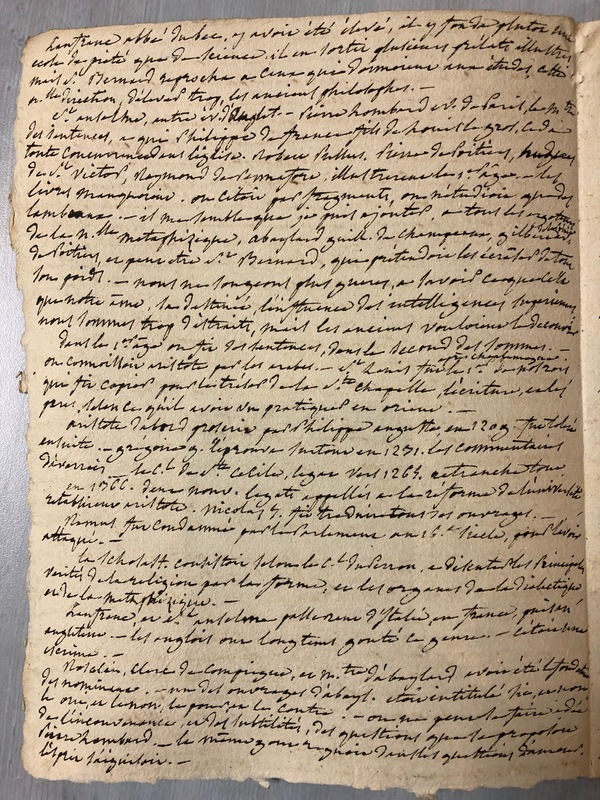 Lanfranc abbé du bec, y avoir été élevé, il y fonda plutot une
ecole de piété que de science. il en sortir plusieurs prélats illustres
mais St. Bernard reprocha a ceux qui donnoient aux études, cette
n.lle direction, d'élever trop, les anciens philosophes. —
St. anselme, entre ev. d'Anglet. — Pierre Lombard ev. de Paris, le m.tre
des sentences, a qui Philippe de france fils de Louis le gros, ceda
toute concurrence dans l'église. Robert Pullus, Pierre de Poitiers, hugues
de St. Victor, Raymond de Pennafort, illustrerent le 1er âge. — les
livres manquoient. on citoit par fragments, on n'étudioit que des
lambeaux. — il me semble que je puis ajouter, a tous les
de la n.lle metaphizique, abaylard guill. de champeaux, gilbert
de Poitiers, et peut etre St. Bernard, qui prétendoit les écraser de tout
son poids. — nous ne songeons plus gueres, a savoir ce que c'est
que notre âme, sa destinée, l'influence des intelligences superieures
nous sommes trop distraits, mais les anciens vouloient le découvrir
dans le 1er âge on fit des sentences, dans le second des sommes. —
on connoissoit aristote par les arabes. — St. Louis fut après charlemagne le 1er de nos rois
que fit copier pour le tresor de la Ste. chapelle, l'écriture, et les
peres, selon ce qu'il avoit vu pratiquer en orient. —
aristote d'abord proscrit par Philippe auguste en 1209 — fut toléré
ensuite — grégoire 9. l'éprouva surtout en 1231. les commentaires
— le C.l de Ste. Cecile, legat vers 1265, retrancha tout
en 1366. deux nouv. legats appellés a la reforme de l'université
retablirent aristote. Nicolas 5. fit traduire tous ses ouvrages. —
Ramus fut condamné par le Parlement au 16.e siecle, pour l'avoir
attaqué. —
la scholast. consistoit selon le C.l du Perron, a discuter les principales
verités de la religion par la forme, et les organes de la dialectique
et de la metaphizique. —
Lanfranc, et St. anselme passerent d'Italie, en france, puis en
angleterre. — les anglois ont longtems gouté ce genre. — c'étoit une
escrime. —
Roscelin, Clerc de compiegne, et m.tre d'abaylard avoit été le fondateur
des nominaux. — un des ouvrages d'abayl. étoit intitulé sic, et non
le oui, et le non, le pour et le contre. — on ne peut se faire idée
de l'inconvenance, et des subtilités, des questions que se proposoit
Pierre Lombard. — le même gout regnoit dans les questions d'amour.
l'esprit s'aiguisoit. —